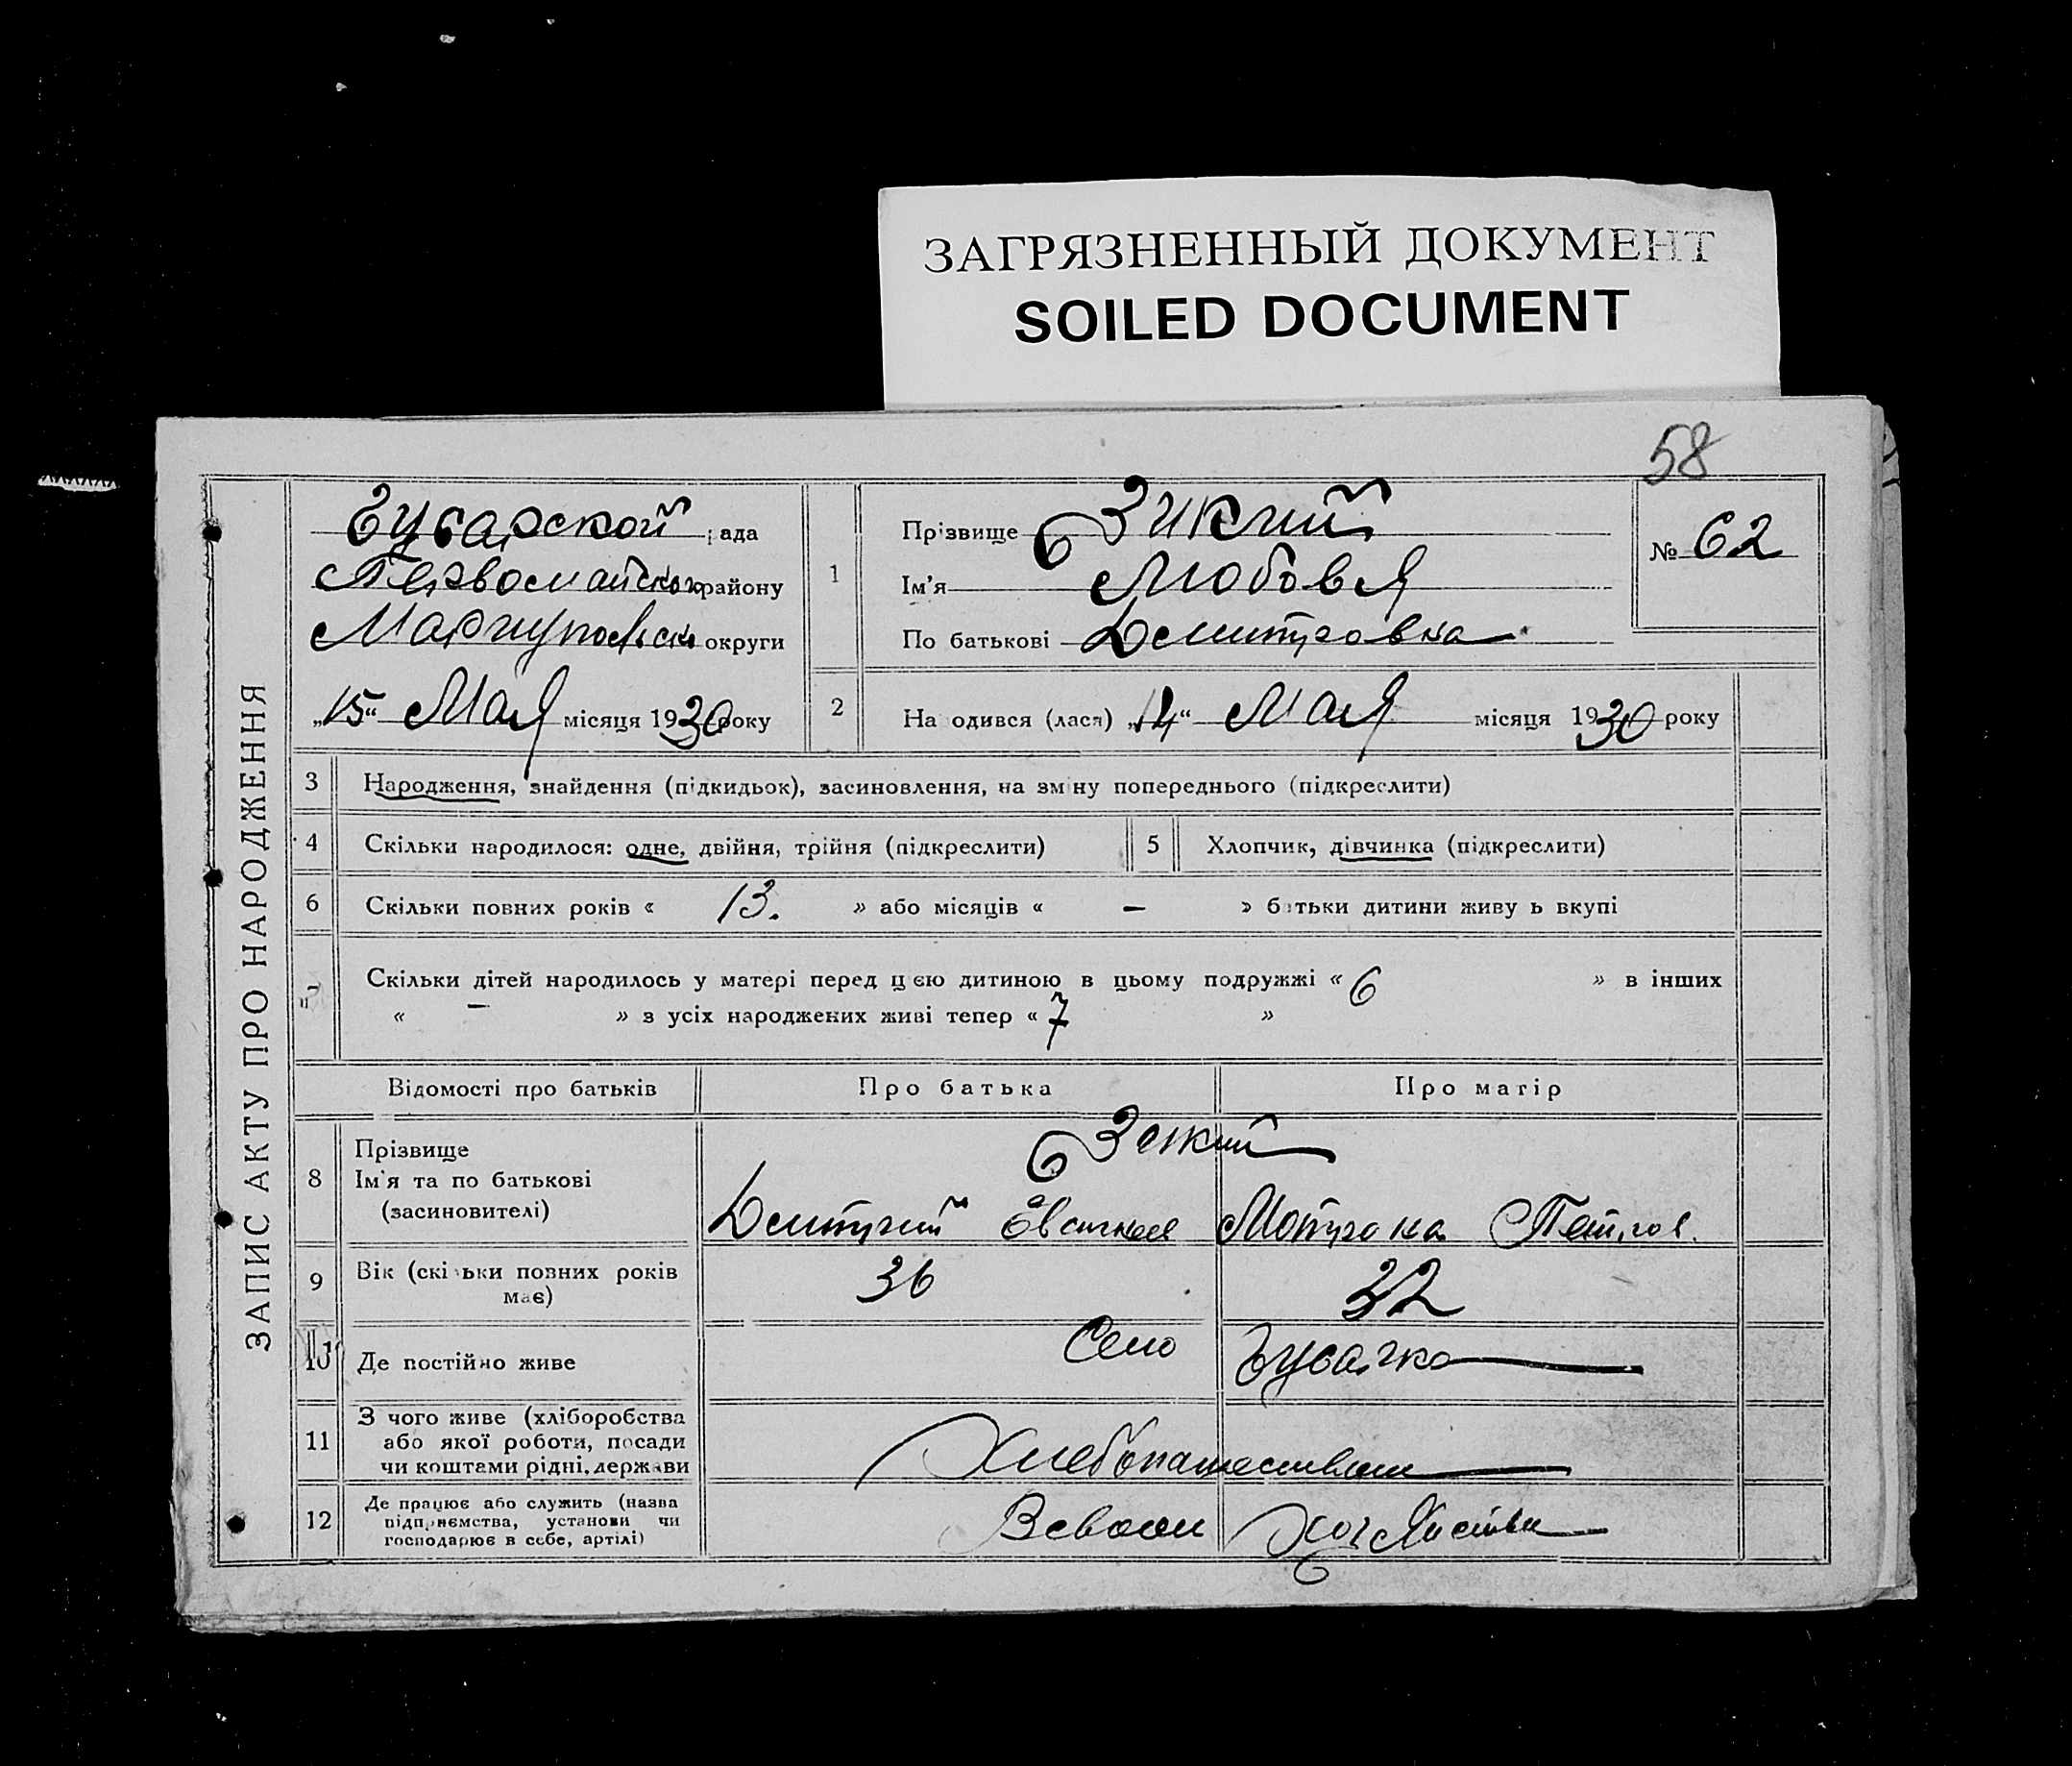 ЗАГРЯЗНЕННЫЙ ДОКУМЕНТ
SOILED DOCUMENT
58
ЗАПИС АКТУ ПРО НАРОДЖЕННЯ
рада
Первомайского району
округи
„15“ Мая місяця 1930 року
1
Прізвище Зикий
Ім'я Любовя
По батькові Дмитровна
№ 62
2 Народився (лася) „14“ Мая місяця 1930 року
3 Народження, знайдення (підкидьок), засиновлення, на зміну попереднього (підкреслити)
4 Скільки народилося: одне, двійня, трійня (підкреслити) 5 Хлопчик, дівчинка (підкреслити)
6 Скільки повних років « 13. » або місяців « — » батьки дитини живуть вкупі
7 Скільки дітей народилось у матері перед цією дитиною в цьому подружжі « 6 » в інших
« — » з усіх народжених живі тепер « 7 »
Відомості про батьків Про батька Про матір
8 Прізвище
Ім'я та по батькові
(засиновителі)
Дмитрий Мотрона Петров.
9 Вік (скільки повних років має) 36 32
10 Де постійно живе Село
11 З чого живе (хліборобства
або якої роботи, посади
чи коштами рідні, держави
Хлебопашеством
12 Де працює або служить (назва
підприємства, установи чи
господарює в себе, артілі)
В своем хозяйстви